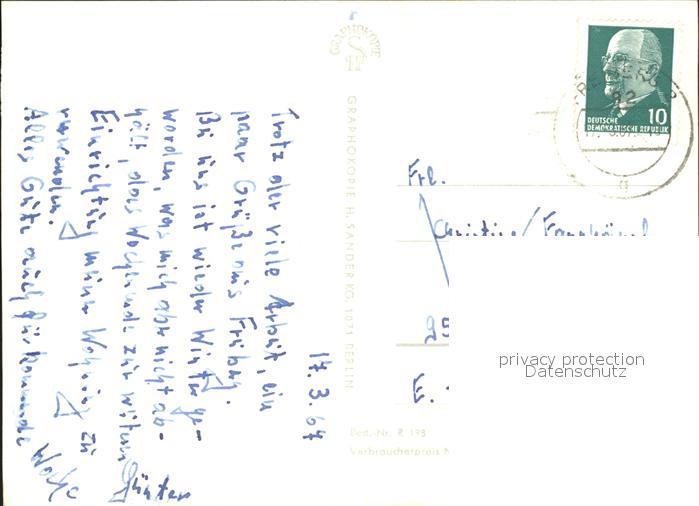 17. 3. 67
Trotz der viele Arbeit, ein
paar Grüße aus Friberg.
Bei uns ist wieder Winter ge-
worden, was mich aber nicht ab-
hält, das Wochenende zur weiteren
Einrichtung meiner Wohnung zu
verwenden.
Alles Gute auch für kommende Woche
Günter
GRAPHOKOPIE
GRAPHOKOPIE H. SANDER KG, 1071 BERLIN
Best.-Nr. R 198
Verbraucherpreis M
10
DEUTSCHE
DEMOKRATISCHE REPUBLIK
Frl.
Christine
95
E.
privacy protection
Datenschutz